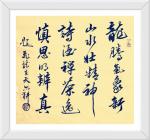 龍騰氣象新
山水壮精神
詩酒禪茶逸
慎思明辨真